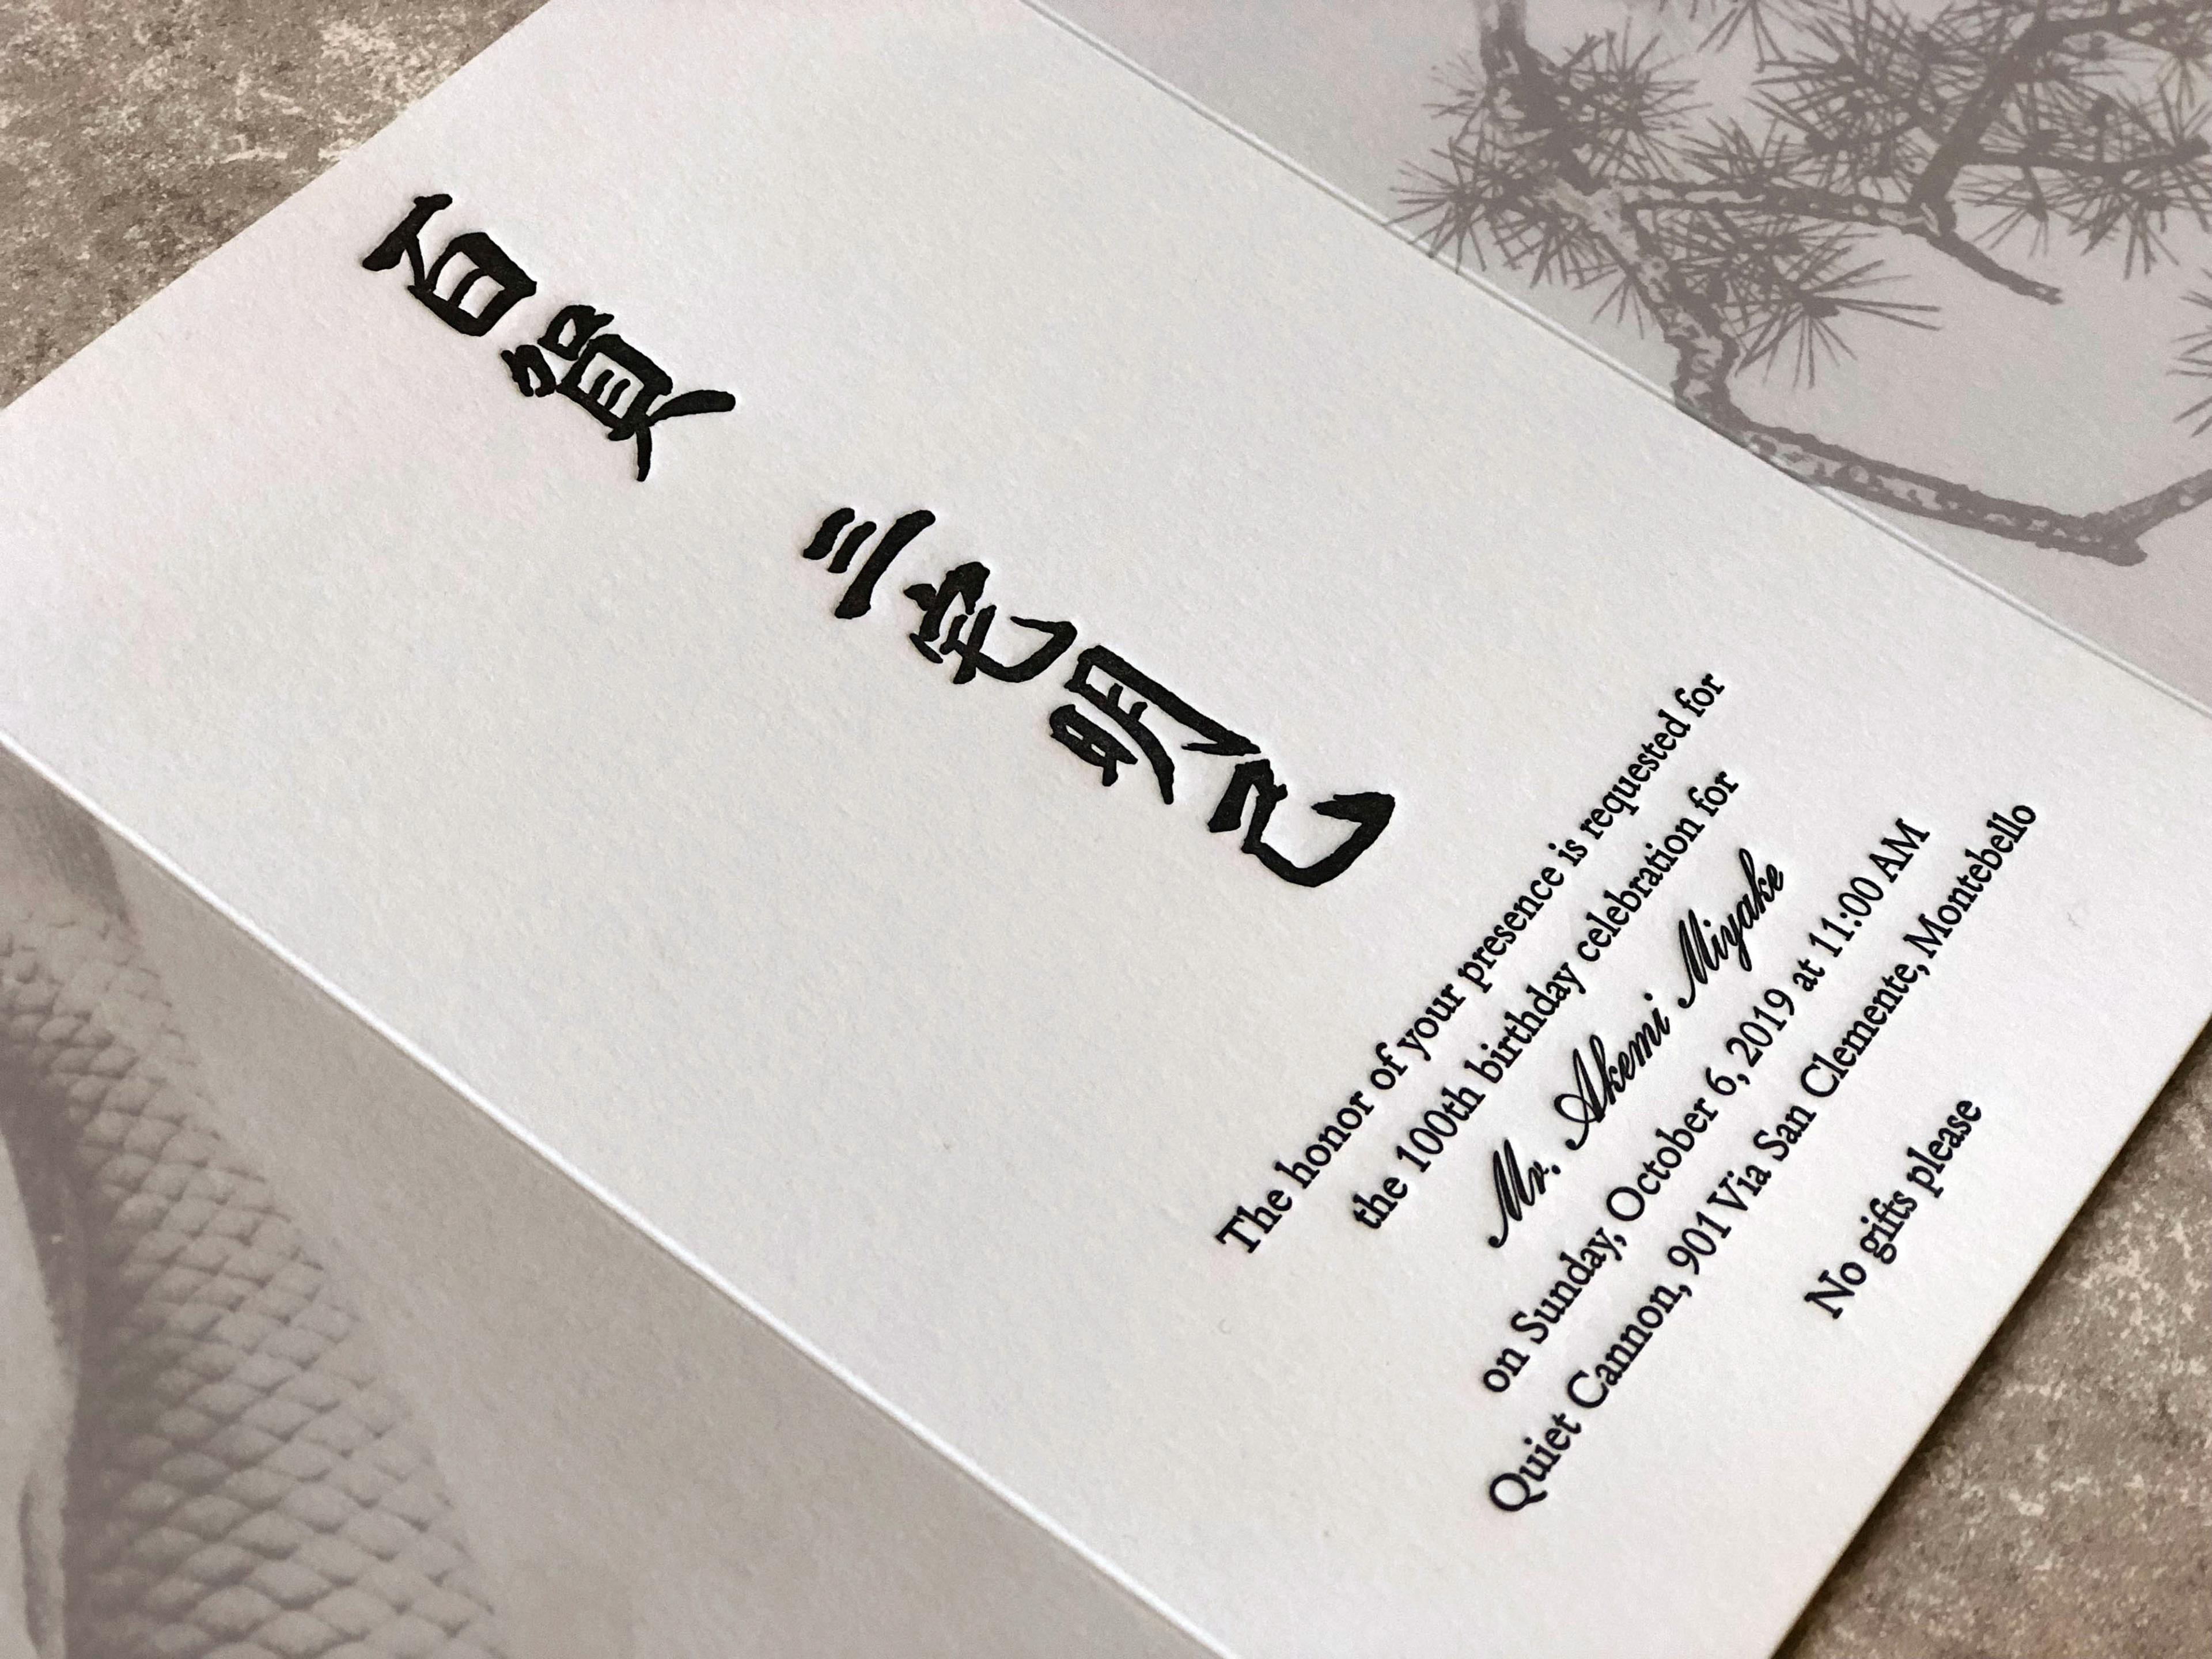 百賀
三宅明己
The honor of your presence is requested for
the 100th birthday celebration for
Mr. Akemi Miyake
on Sunday, October 6, 2019 at 11:00 AM
Quiet Cannon, 901 Via San Clemente, Montebello
No gifts please